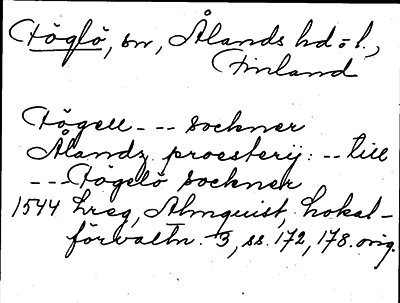 Föglö, sn, Ålands hd o l.,
Finland
Fögell --- sockner
Ålandz proesterij: -- till
--- Fögelö sockner
1544 hreg, Almquist, Lokal-
förvaltn. 3, ss. 172, 178. orig.